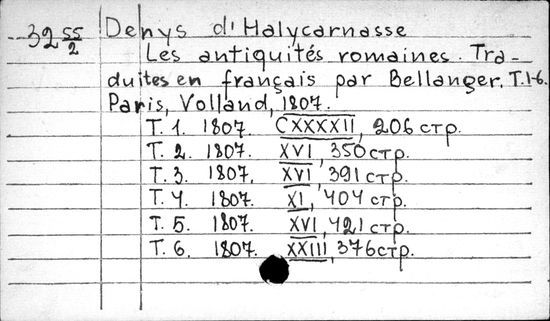 32 55/2
Denys d'Halycarnasse
Les antiquités romaines. Tra-
duites en français par Bellanger. T. 1-6.
Paris, Volland, 1807.
T. 1. 1807. CXXXXII, 206 стр.
T. 2. 1807. XVI, 350 стр.
T. 3. 1807. XVI, 391 стр.
T. 4. 1807. XI, 404 стр.
T. 5. 1807. XVI, 421 стр.
T. 6. 1807. XXIII, 376 стр.